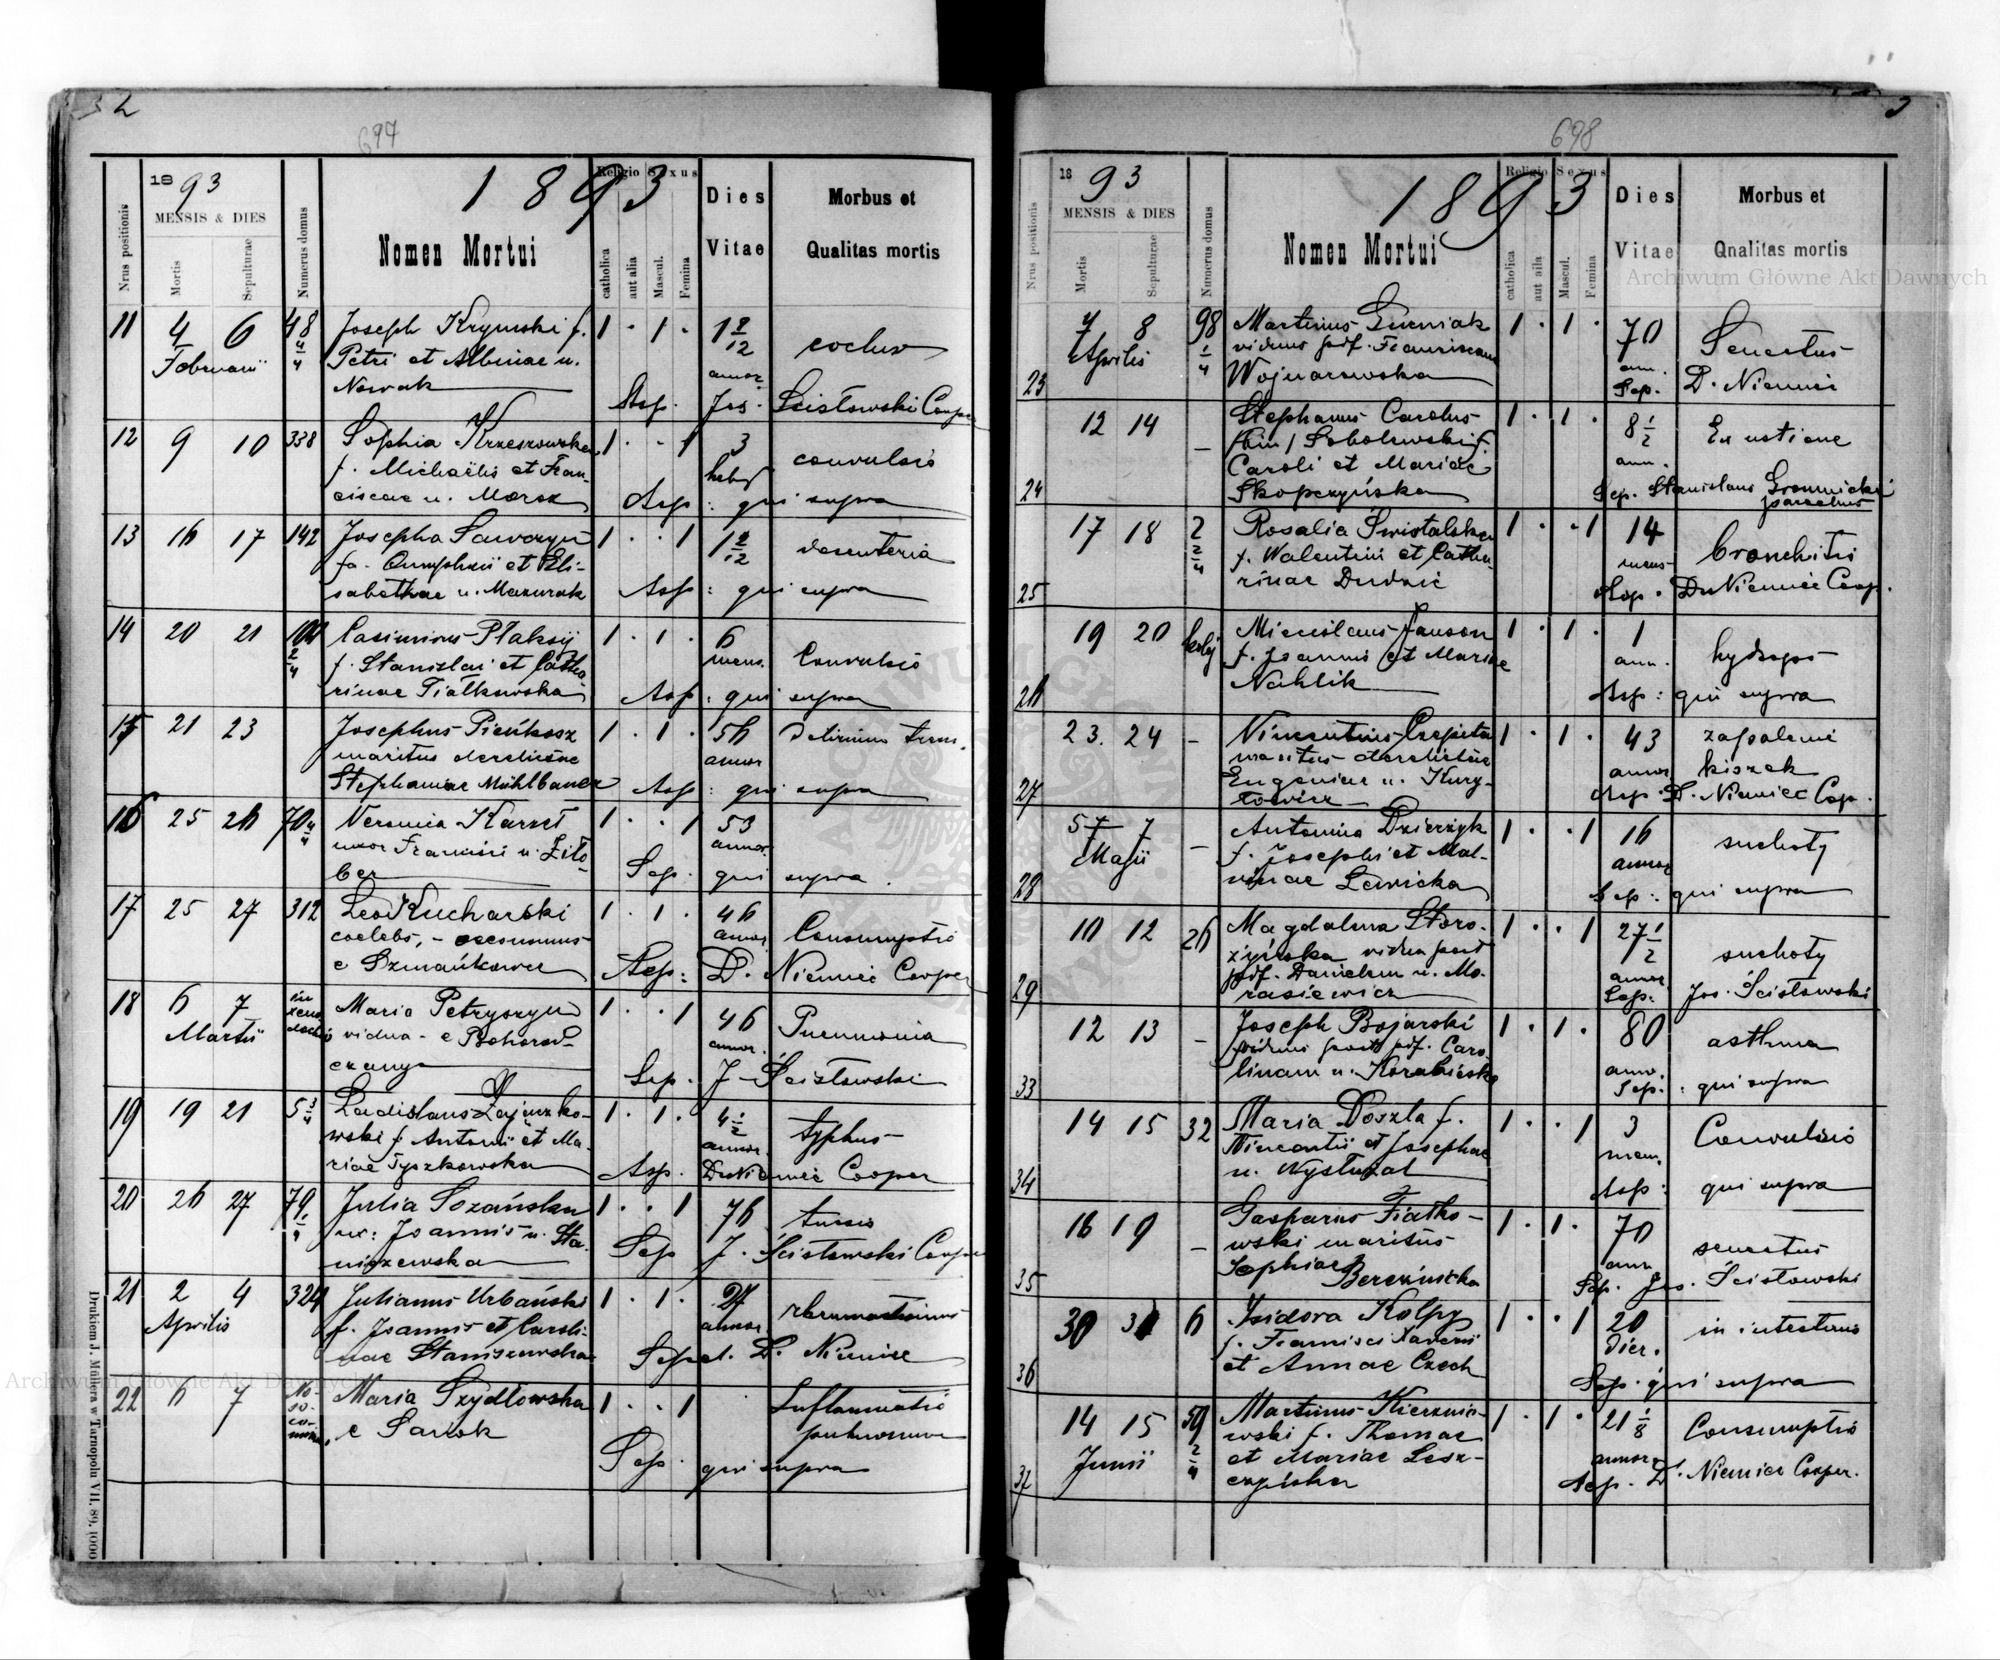 2
697
1893
1 8 9 3
Nrus positionis
MENSIS & DIES
Mortis
Sepulturae
Numerus domus
Nomen Mortui
Religio
catholica
aut alia
Sexus
Mascul.
Femina
Dies
Vitae
Morbus et
Qualitas mortis
11 4 6 48
Februarii
Joseph Krymski f.
Petri et Albinae n.
Nowak
1 . 1 .
annor.
Asp. Jos. Ścisłowski Cooper
12 9 10 338
Sophia Krzeszowska
f. Michaëlis et Fran-
ciscae n. Moroz
1 . . 1
3
hebd
convulsio
Asp : qui supra
13 16 17 142
Josepha Saworyn
fa. Onuphrii et Eli-
sabethae n. Mazurak
1 . . 1
1 2/12
Asp : qui supra
14 20 21 104 2/4
Casimirus Płaksij
f. Stanislai et Catha-
rinae Fiałkowska
1 . 1 .
6
mens.
Convulsio
Asp : qui supra
15 21 23
Josephus Pieńkosz
maritus derelictae
Stephaniae Mühlbauer
1 . 1 .
56
annor
Delirium trem.
Asp : qui supra
16 25 26 70 4/4
Veronica Karszt
uxor Francisci n. Zito-
ber
1 . . 1
53
annor.
Sep. qui supra.
17 25 27 312
Leo Kucharski
coelebs, -
e Szmańkowce
1 . 1 .
46
annor
Consumptio
Asp : D. Niemiec Cooper
18 6 7
Martii
Maria Petryszyn
vidua - e Bohorod-
czany
1 . . 1
46
annor.
Pneumonia
Sep. J. Ścisłowski
19 19 21 5 3/4
Ladislaus Zajączko-
wski f. Antonii et Ma-
riae Tyszkowska
1 . 1 .
4 1/2
annor.
typhus
Asp. D. Niemiec Cooper
20 26 27 79 1/4
Julia Sozańska
ux: Joannis n. Sta-
niszewska
1 . . 1
76
tussis
Sep J. Ścisłowski Cooper
21 2 4 324
Aprilis
Julianus Urbański
f. Joannis et Caroli-
nae Staniszewska
1 . 1 .
27
annor
rheumatismus
Sepel. D. Niemiec
22 6 7
No-
so-
co-
mium
Maria Szydłowska
e Sanok
1 . . 1
Inflammatio
pulmonum
Sep. qui supra
Drukiem J. Müllera w Tarnopolu VII. 89. 1000
698
3
1893
1 8 9 3
Nrus positionis
MENSIS & DIES
Mortis
Sepulturae
Numerus domus
Nomen Mortui
Religio
catholica
aut aila
Sexus
Mascul.
Femina
Dies
Vitae
Morbus et
Qnalitas mortis
23 7 8 98 1/4
Aprilis
Martinus Gurniak
viduus post f. Franciscam
Wojnarowska
1 . 1 .
70
ann.
Senectus
Sep. D. Niemiec
24 12 14 -
Stephanus Carolus
/bin/ Sobolewski f.
Caroli et Mariae
Skopczyńska
1 . 1 .
8 1/2
ann.
Ex ustione
Sep. Stanislaus Gromnicki
parochus
25 17 18 2 2/4
Rosalia Świstalska
f. Walentini et Catha-
rinae Dudzic
1 . . 1
14
mens.
bronchitis
Asp. D. Niemiec Coop.
26 19 20 kolej
Miecislaus Janson
f. Joannis et Mariae
Nahlik
1 . 1 .
1
ann.
hydrops
Asp : qui supra
27 23. 24 -
Vincentius Czepita
maritus derelictae
Eugeniae n. Kury-
łowicz
1 . 1 .
43
annor
zapalenie
kiszek
Asp. D. Niemiec Coop.
28 5 7 -
Maji
Antonina Dzierżyk
f. Josephi et Mal-
vinae Lewicka
1 . . 1
16
annor
suchoty
Sep : qui supra
29 10 12 26
Magdalena Storo-
żyńska vidua post
pdf. Danielem n. Mo-
rasiewicz
1 . . 1
27 1/2
annor
suchoty
Sep. Jos. Ścisłowski
33 12 13 -
Joseph Bojarski
viduus post pdf. Caro-
linam n. Korabieska
1 . 1 .
80
ann.
asthma
Sep. : qui supra
34 14 15 32
Maria Doszla f.
Vincentii et Josephae
n. Nystuzal
1 . . 1
3
mens.
Convulsio
Asp : qui supra
35 16 19 -
Gasparus Fiałko-
wski maritus
Sophiae
Berezińska
1 . 1 .
70
ann
senectus
Sep. Jos. Ścisłowski
36 30 31 6
Isidora Kolpy
f. Francisci Xaverii
et Annae Czech
1 . . 1
20
dier.
in intestinis
Sep. qui supra
37 14 15 59 2/4
Junii
Martinus Kierznio-
wski f. Thomae
et Mariae Lesz-
czyńska
1 . 1 .
21 1/8
annor.
Consumptio
Asp. D. Niemiec Cooper.
Archiwum Główne Akt Dawnych
Archiwum Główne Akt Dawnych